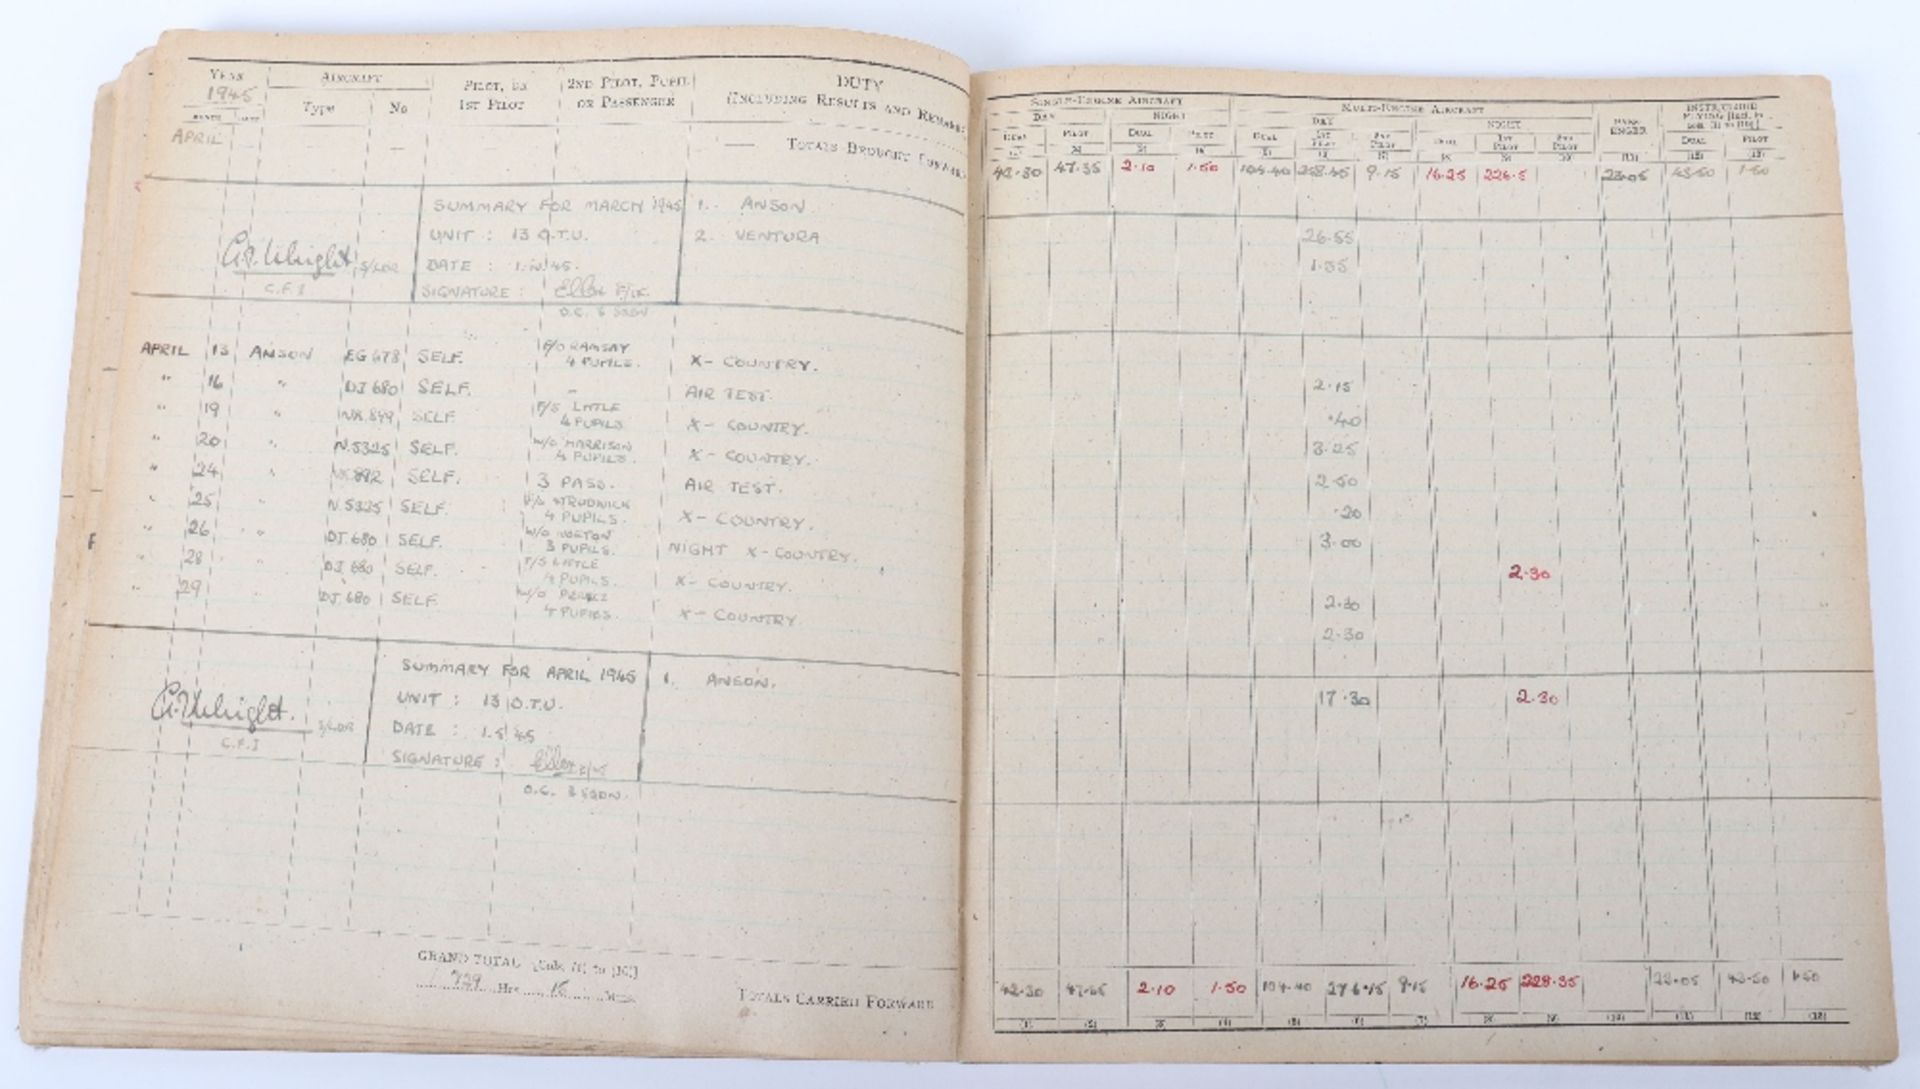 YEAR AIRCRAFT PILOT, OR 2ND PILOT, PUPIL DUTY
1945 Type No 1ST PILOT OR PASSENGER (INCLUDING RESULTS AND REMARKS)
MONTH DATE
APRIL — — — — — TOTALS BROUGHT FORWARD
SUMMARY FOR MARCH 1945 1. ANSON
UNIT : 13 O.T.U. 2. VENTURA
S/LDR DATE : 45.
C.F.I SIGNATURE :
O.C. SQDN
APRIL 13 ANSON EG 678 SELF. F/O RAMSAY
4 PUPILS. X- COUNTRY.
" 16 " DJ 680 SELF. - AIR TEST.
" 19 " SELF. F/S LITTLE
4 PUPILS X- COUNTRY.
" 20 " N.5325 SELF. W/O HARRISON
4 PUPILS. X- COUNTRY.
" 24 " SELF. 3 PASS. AIR TEST.
" 25 " N.5325 SELF. STRUDWICK
4 PUPILS. X- COUNTRY.
" 26 " DJ.680 SELF. W/O NORTON
3 PUPILS. NIGHT X-COUNTRY.
" 28 " DJ.680 SELF. F/S LITTLE
4 PUPILS. X- COUNTRY.
" 29 " DJ.680 SELF. W/O
4 PUPILS. X- COUNTRY.
SUMMARY FOR APRIL 1945 1. ANSON.
UNIT : 13 O.T.U.
S/LDR DATE : 1.5.45
C.F.I SIGNATURE :
O.C. SQDN.
GRAND TOTAL [Cols. (1) to (10)]
729 Hrs 15 Mins
TOTALS CARRIED FORWARD
SINGLE-ENGINE AIRCRAFT MULTI-ENGINE AIRCRAFT PASS-ENGER INSTR/CLOUD FLYING [Incl. in cols. (1) to (10)]
DAY NIGHT DAY NIGHT
DUAL PILOT DUAL PILOT DUAL 1ST PILOT 2ND PILOT DUAL 1ST PILOT 2ND PILOT DUAL PILOT
(1) (2) (3) (4) (5) (6) (7) (8) (9) (10) (11) (12) (13)
42.30 47.35 2.10 1.50 104.40 258.45 9.15 16.25 226.5 23.05 43.50 1.50
26.55
1.35
2.15
.40
3.25
2.50
.20
3.00
2.30
2.30
2.30
17.30 2.30
42.30 47.35 2.10 1.50 104.40 276.15 9.15 16.25 228.35 23.05 43.50 1.50
(1) (2) (3) (4) (5) (6) (7) (8) (9) (10) (11) (12) (13)